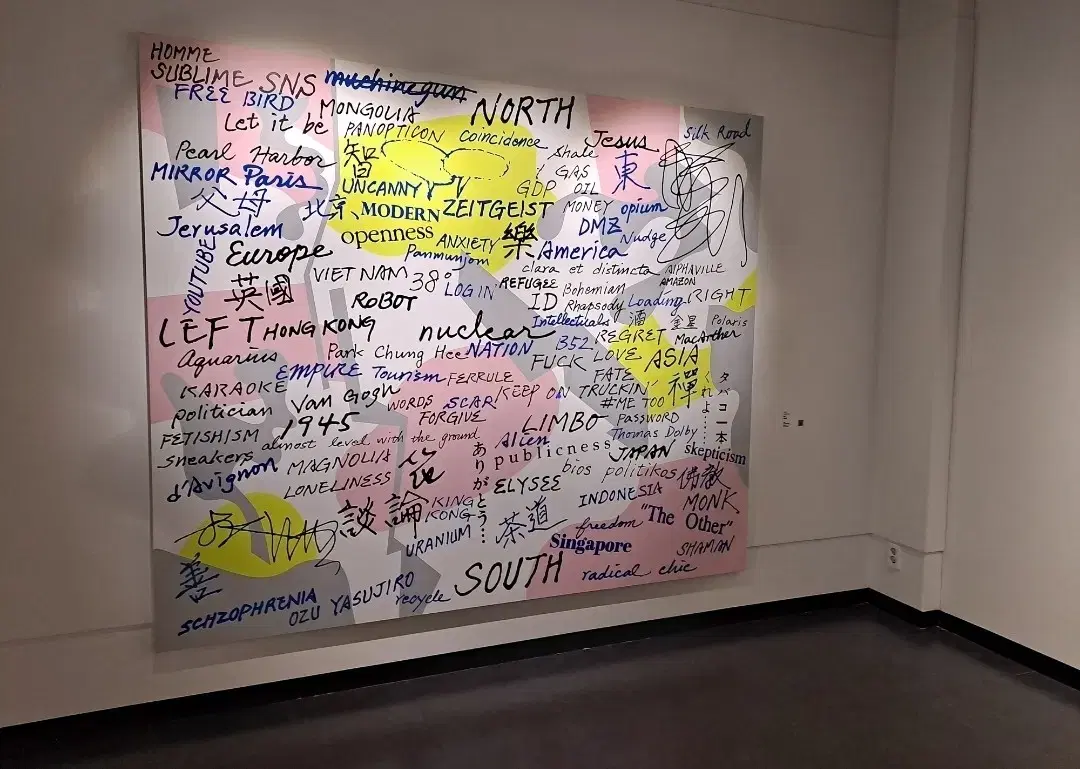 HOMME
SUBLIME SNS muchinegun
FREE BIRD MONGOLIA NORTH
Let it be PANOPTICON Coincidence Jesus Silk Road
Pearl Harbor 智 Shale GAS
MIRROR Paris UNCANNY GDP OIL 東
父母 北京、MODERN ZEITGEIST MONEY opium
Jerusalem openness ANXIETY 樂 America DMZ Nudge
YOUTUBE Europe Panmunjom clara et distincta AlPHAVILLE
英國 VIETNAM 38° LOG IN REFUGEE Bohemian AMAZON
ROBOT ID Rhapsody Loading RIGHT
LEFT HONG KONG nuclear Intellectuals 酒 金星 Polaris
Aquarius Park Chung Hee NATION B52 REGRET MacArther
EMPIRE Tourism FERRULE FUCK LOVE ASIA
KARAOKE Van Gogh WORDS SCAR KEEP ON TRUCKIN' FATE 禪
politician 1945 FORGIVE #ME TOO くれよ…… タバコ一本
FETISHISM almost level with the ground LIMBO PASSWORD
sneakers MAGNOLIA Alien publicness Thomas Dolby JAPAN skepticism
d'Avignon LONELINESS ありがとう… bios politikos
ELYSEE INDONESIA 佛教
談論 KING KONG 茶道 freedom "The Other" MONK
URANIUM Singapore SHAMAN
善 SOUTH radical chic
SCHZOPHRENIA OZU YASUJIRO recycle